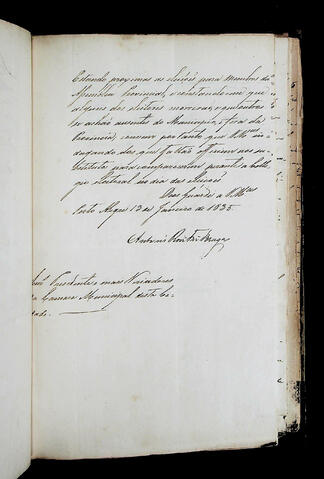 Estando proximas as eleições para membros da
Assemblea Provincial, e constando-me que
alguns dos eleitores
se achão ausentes do Municipio, e fora da
Provincia, cumpre portanto que V.Mces in-
dagando dos que faltão officiem aos su-
para comparecerem perante o Colle-
gio eleitoral no dia das eleições.
Deos Guarde a V.Mces
Porto Alegre 13 de Janeiro de 1835.
Antonio Roiz Fernandes Braga
Presidente, e mais Vereadores
da Camara Municipal desta Ci-
dade.